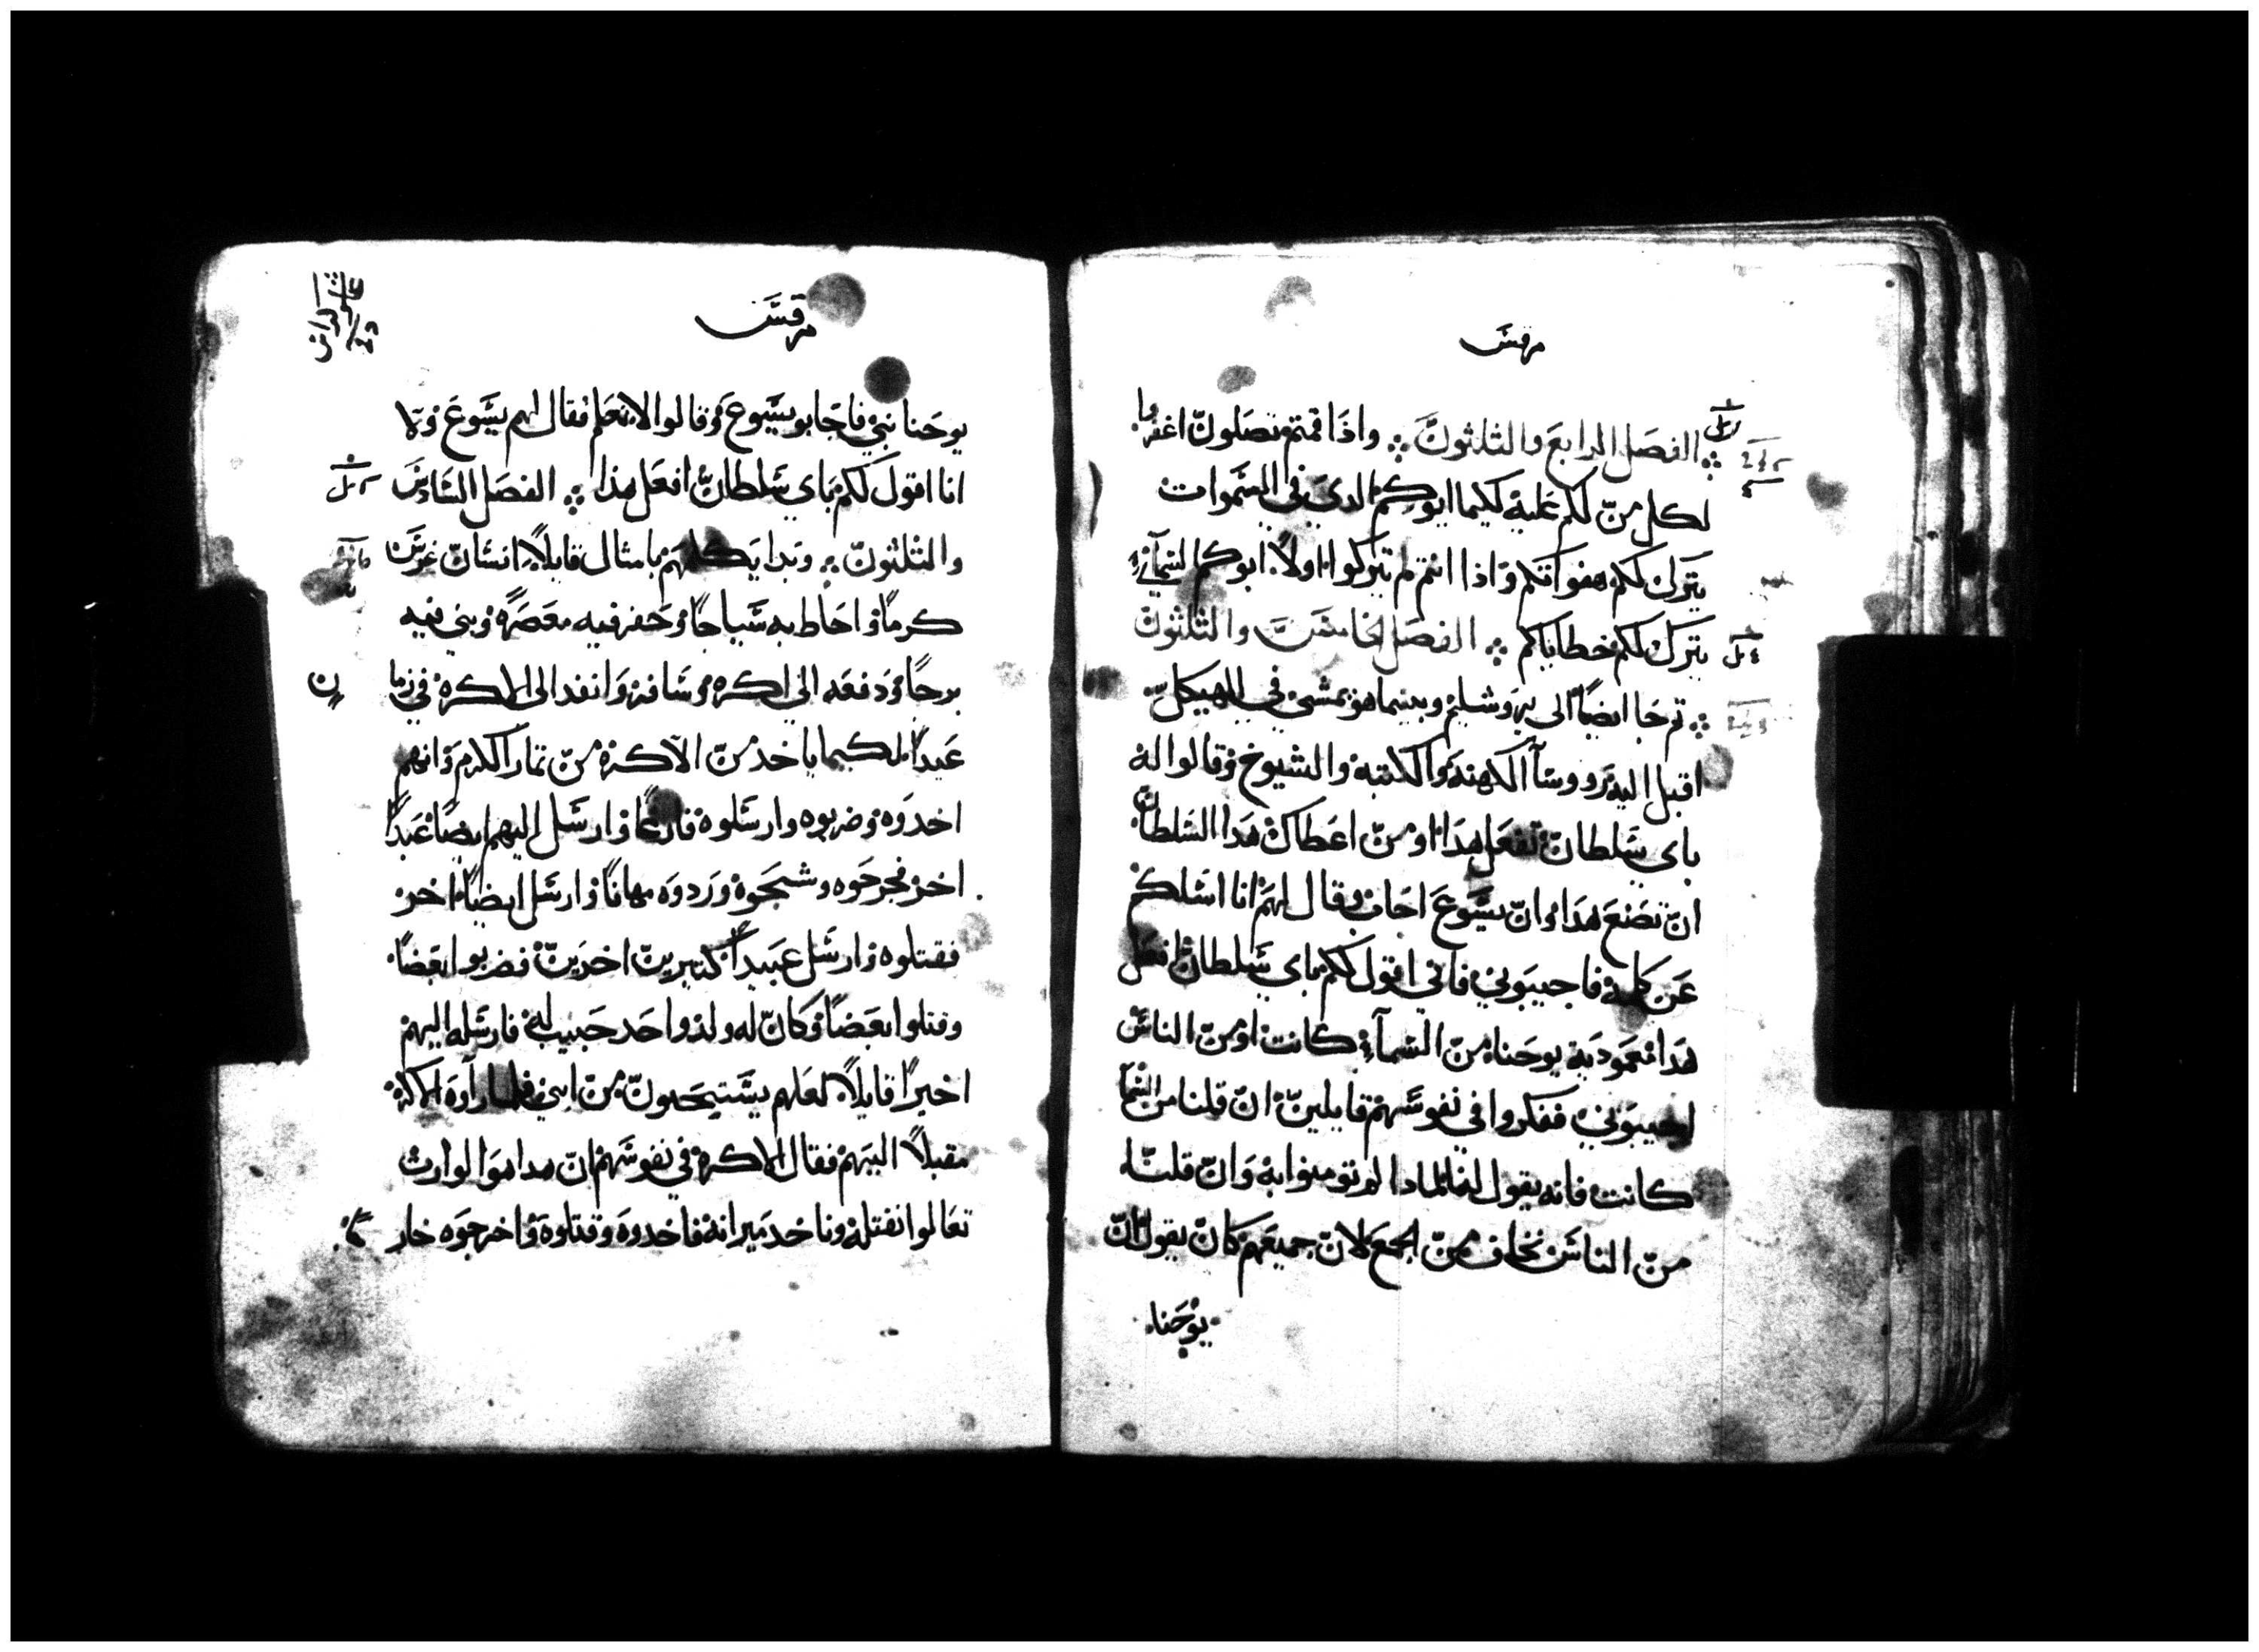 مرقس
الفصل الرابع والثلثون واذا قمتم تصلون اغفروا
لكل من لكم عليه لكيما ابوكم الدي في السموات
يترك لكم هفواتكم واذا انتم لم تتركوا ولا ابوكم السمآئي
يترك لكم خطاياكم الفصل الخامس والثلثون
ثم جا ايضا الى يروشليم وبينما هو يمشي في الهيكل
اقبل اليه رووسآ الكهنة والكتبة والشيوخ وقالوا له
باي سلطان تفعل هدا او من اعطاك هدا السلطان
ان تصنع هدا وان يسوع اجاب وقال لهم انا اسلكم
عن كلمة فاجيبوني فاني اقول لكم باي سلطان افعل
هدا معمودية يوحنا من السمآء كانت او من الناس
اجيبوني ففكروا في نفوسهم قايلين ان قلنا من السما
كانت فانه يقول لنا لمادا لم تومنوا به وان قلنا
من الناس نخاف من الجمع لان جميعهم كان يقول ان
يوحنا
مرقس
يوحنا نبي فاجابو يسوع وقالوا لا نعلم فقال لهم يسوع ولا
انا اقول لكم باي سلطان افعل هدا الفصل السادس
والثلثون وبدا يكلمهم بامثال قايلا انسان غرس
كرما واحاط به سياجا وحفر فيه معصرة وبنى فيه
برجا ودفعه الى اكره وسافر وانفد الى الاكرة في زمان
عبدا لكيما ياخد من الاكرة من تمار الكرم وانهم
اخدوه وضربوه وارسلوه فارغا وارسل اليهم ايضا عبدا
اخر فجرحوه وشجوه وردوه مهانا وارسل ايضا اخر
فقتلوه وارسل عبيدا كتيرين اخرين فضربوا بعضا
وقتلوا بعضا وكان له ولد واحد حبيب اليه فارسله اليهم
اخيرا قايلا لعلهم يستيحون من ابني فلما رآوه الاكرة
مقبلا اليهم فقال الاكرة في نفوسهم ان هدا هو الوارث
تعالوا نقتله وناخد ميراثه فاخدوه وقتلوه واخرجوه خار